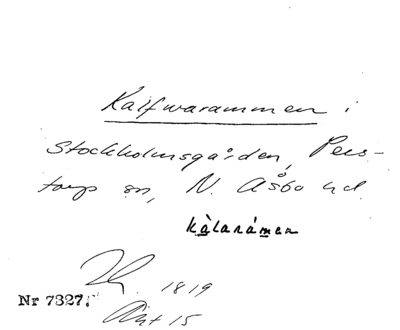 Kalfwarammen i
Stockholmsgården, Pers-
torp sn, N. Åsbo hd
kàlarámen
1819
Nr 7327.
Akt 15